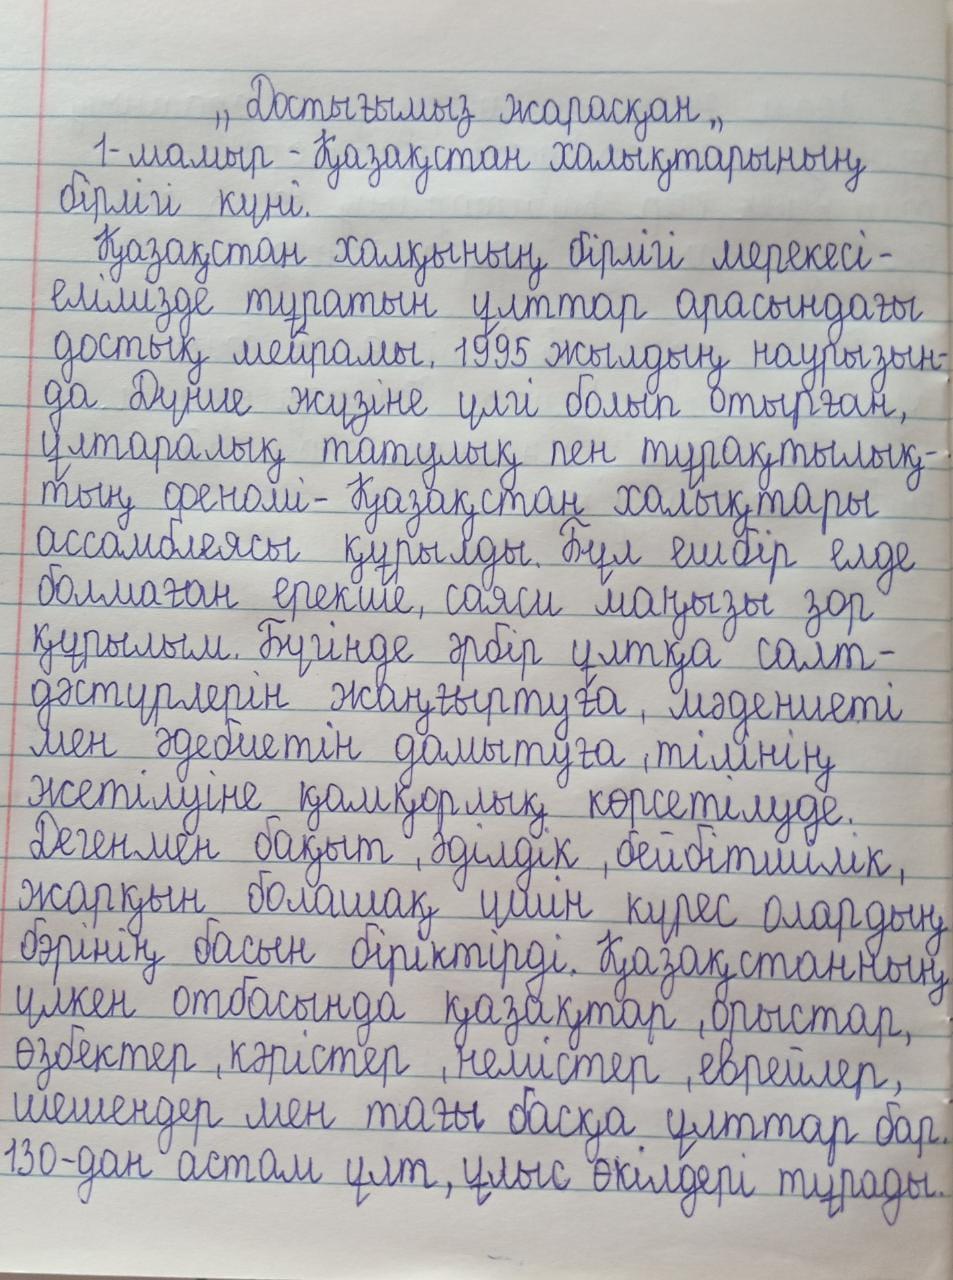 „ Достығымыз жарасқан „
1-мамыр - Қазақстан халықтарының
бірлігі күні.
Қазақстан халқының бірлігі мерекесі-
елімізде тұратын ұлттар арасындағы
достық мейрамы. 1995 жылдың наурызын-
да Дүние жүзіне үлгі болып отырған,
ұлтаралық татулық пен тұрақтылық-
тың феномі - Қазақстан халықтары
ассамблеясы құрылды. Бұл ешбір елде
болмаған ерекше, саяси маңызы зор
құрылым. Бүгінде әрбір ұлтқа салт-
дәстүрлерін жаңғыртуға, мәдениеті
мен әдебиетін дамытуға, тілінің
жетілуіне қамқорлық көрсетілуде.
Дегенмен бақыт, әділдік, бейбітшілік,
жарқын болашақ үшін күрес олардың
бәрінің басын біріктірді. Қазақстанның
үлкен отбасында қазақтар, орыстар,
өзбектер, кәрістер, немістер, еврейлер,
шешендер мен тағы басқа ұлттар бар.
130-дан астам ұлт, ұлыс өкілдері тұрады.